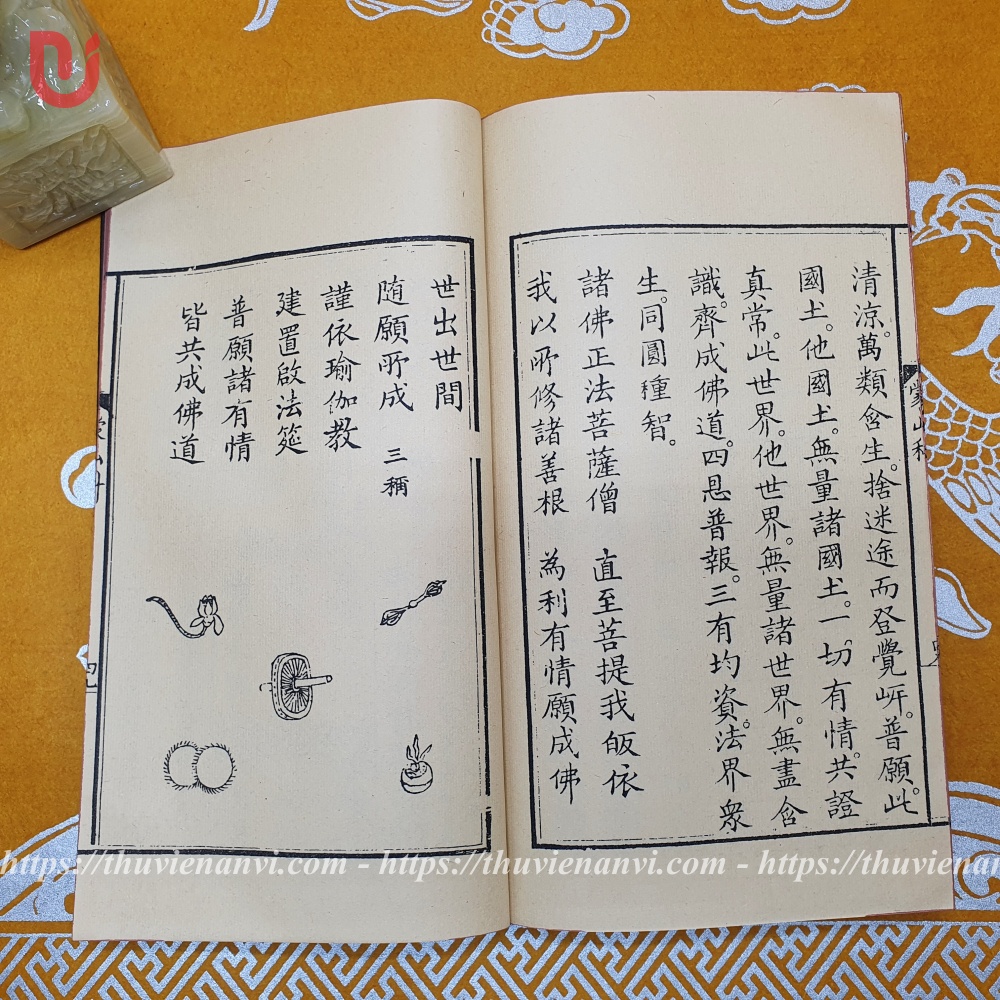 清涼。萬類含生。捨迷途而登覺岸。普願此。
國土。他國土。無量諸國土。一切有情。共證
真常。此世界。他世界。無量諸世界。無盡含
識。齊成佛道。四恩普報。三有均資。法界眾
生。同圓種智。
諸佛正法菩薩僧 直至菩提我皈依
我以所修諸善根 為利有情願成佛
蒙山科
世出世間
随願所成 三稱
謹依瑜伽教
建置啟法筵
普願諸有情
皆共成佛道
https://thuvienanvi.com - https://thuvienanvi.com - https://thuviena